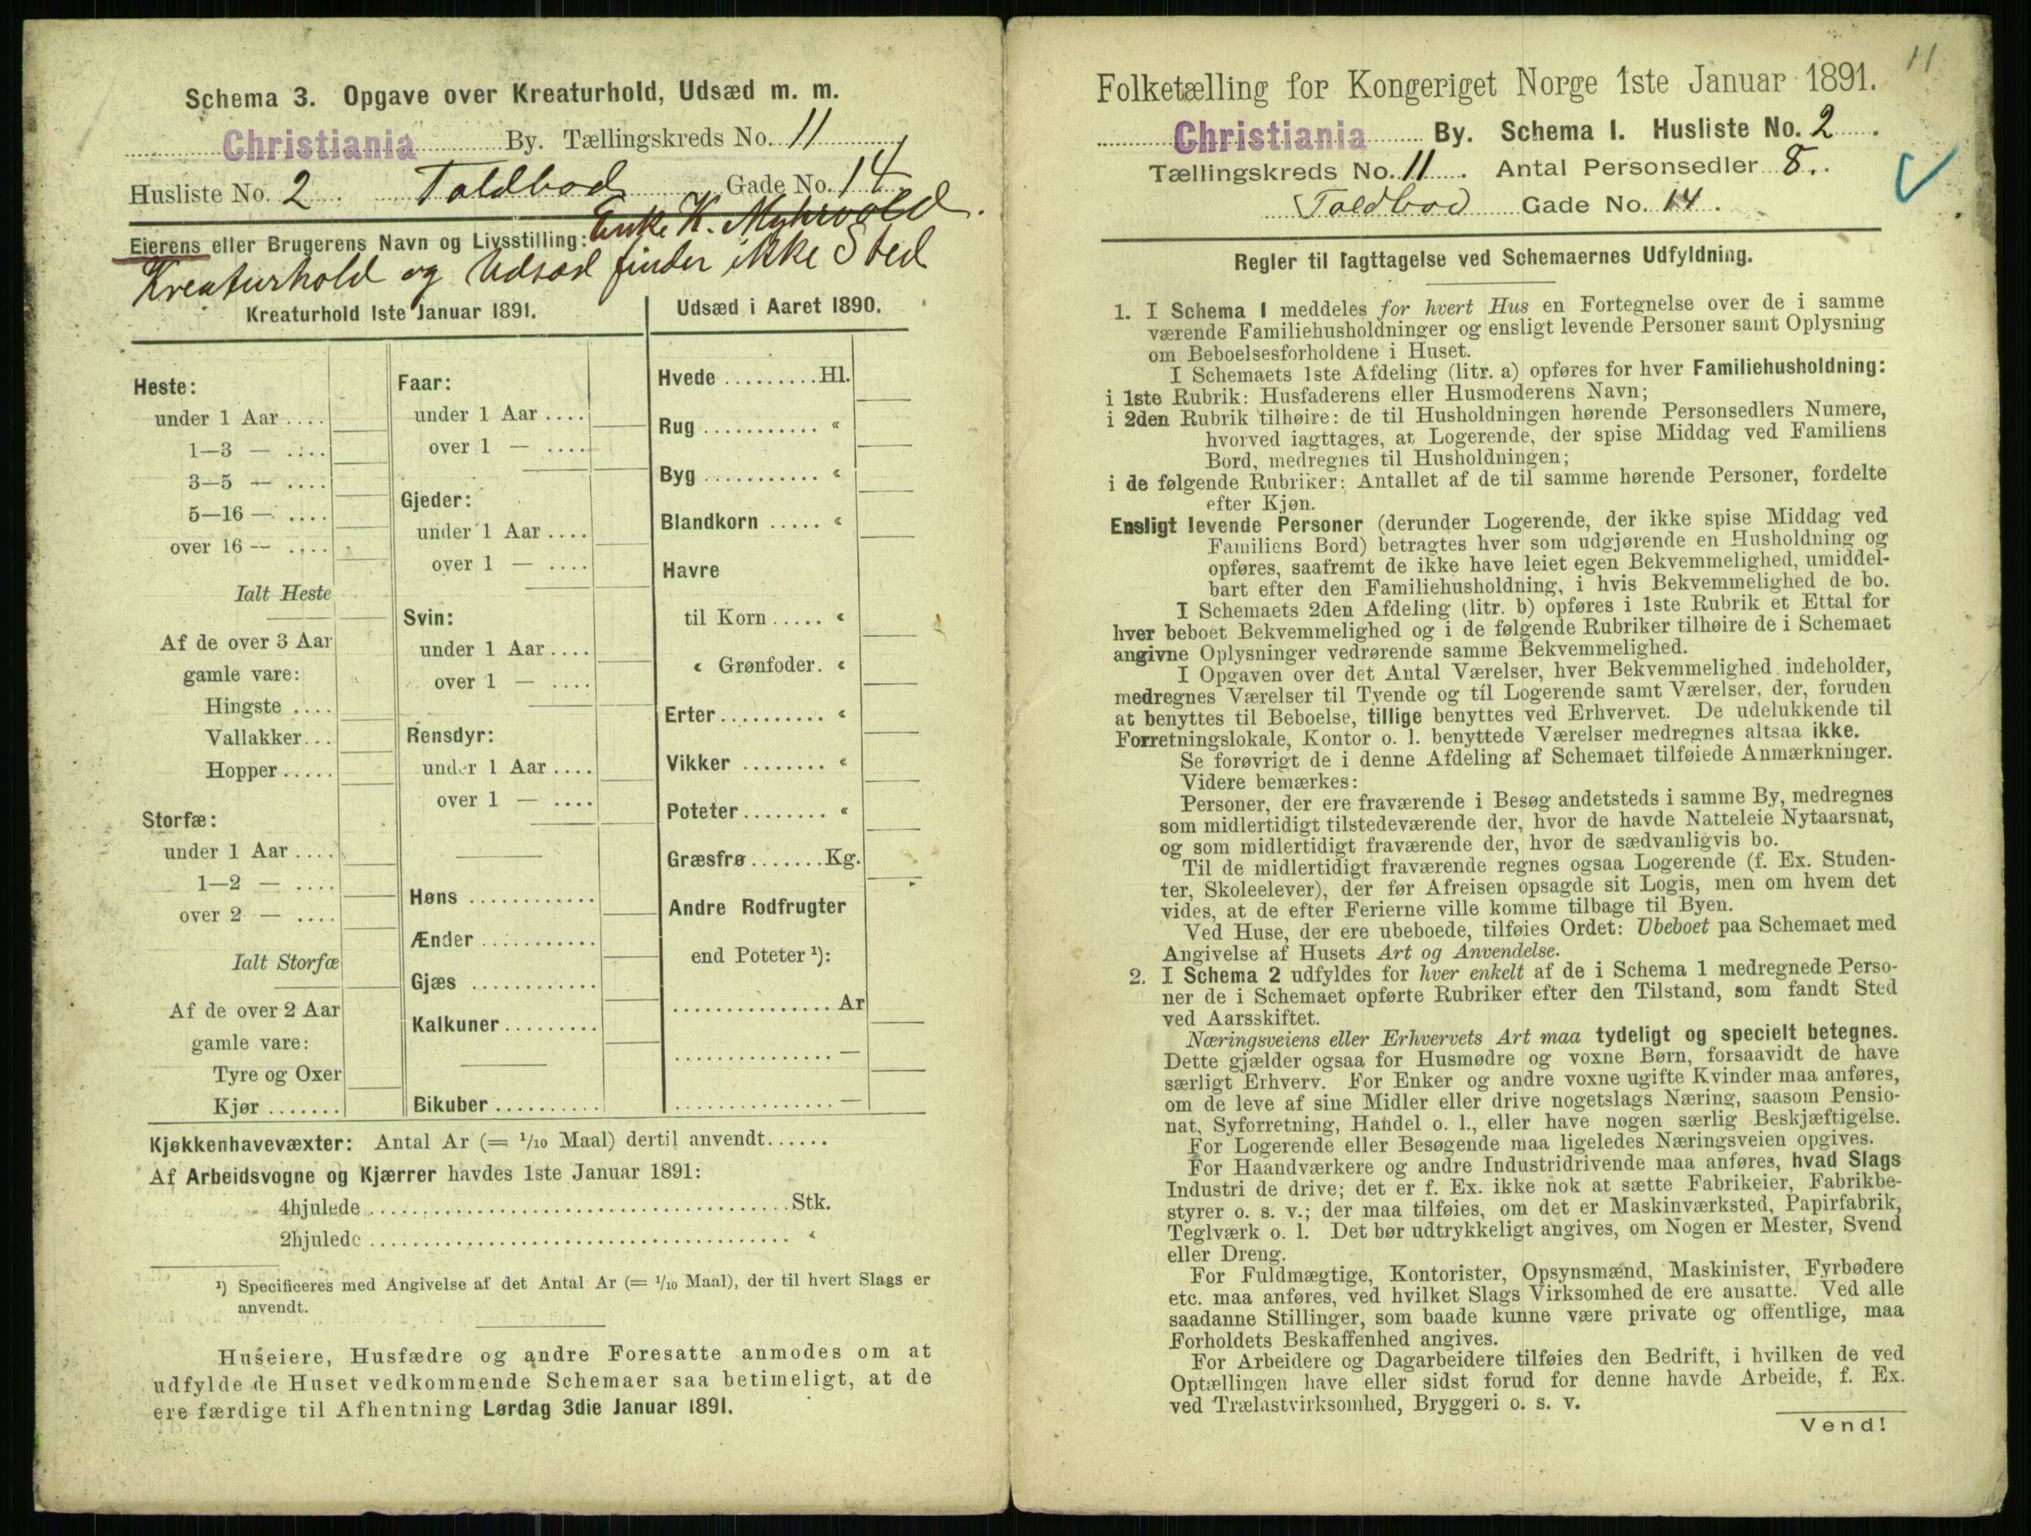 Schema 3. Opgave over Kreaturhold, Udsæd m. m.
Christiania By. Tællingskreds No. 11
Husliste No. 2 Toldbod Gade No. 14
Eierens eller Brugerens Navn og Livsstilling: Enke K. Myhrvold.
Kreaturhold og Udsæd finder ikke Sted
Kreaturhold 1ste Januar 1891.
Heste:
under 1 Aar ....
1—3 — ....
3—5 — ....
5—16 — ....
over 16 — ....
Ialt Heste
Af de over 3 Aar
gamle vare:
Hingste ....
Vallakker...
Hopper.....
Storfæ:
under 1 Aar ....
1—2 — ....
over 2 — ....
Ialt Storfæ
Af de over 2 Aar
gamle vare:
Tyre og Oxer
Kjør .......
Faar:
under 1 Aar ....
over 1 — ....
Gjeder:
under 1 Aar ....
over 1 — ....
Svin:
under 1 Aar ....
over 1 — ....
Rensdyr:
under 1 Aar ....
over 1 — ....
Høns ............
Ænder ...........
Gjæs ............
Kalkuner.........
Bikuber ..........
Udsæd i Aaret 1890.
Hvede .........Hl.
Rug ........... «
Byg ........... «
Blandkorn ..... «
Havre
til Korn ..... «
« Grønfoder. «
Erter.......... «
Vikker ........ «
Poteter........ «
Græsfrø .......Kg.
Andre Rodfrugter
end Poteter ¹):
............... Ar
............... —
............... —
Kjøkkenhavevæxter: Antal Ar (= 1/10 Maal) dertil anvendt......
Af Arbeidsvogne og Kjærrer havdes 1ste Januar 1891:
4hjulede ........................................Stk.
2hjulede ........................................ «
¹) Specificeres med Angivelse af det Antal Ar (= 1/10 Maal), der til hvert Slags er
anvendt.
Huseiere, Husfædre og andre Foresatte anmodes om at
udfylde de Huset vedkommende Schemaer saa betimeligt, at de
ere færdige til Afhentning Lørdag 3die Januar 1891.
11
Folketælling for Kongeriget Norge 1ste Januar 1891.
Christiania By. Schema 1. Husliste No. 2
Tællingskreds No. 11 Antal Personsedler 8.
Toldbod Gade No. 14
Regler til Iagttagelse ved Schemaernes Udfyldning.
1. I Schema 1 meddeles for hvert Hus en Fortegnelse over de i samme
værende Familiehusholdninger og ensligt levende Personer samt Oplysning
om Beboelsesforholdene i Huset.
I Schemaets 1ste Afdeling (litr. a) opføres for hver Familiehusholdning:
i 1ste Rubrik: Husfaderens eller Husmoderens Navn;
i 2den Rubrik tilhøire: de til Husholdningen hørende Personsedlers Numere,
hvorved iagttages, at Logerende, der spise Middag ved Familiens
Bord, medregnes til Husholdningen;
i de følgende Rubriker: Antallet af de til samme hørende Personer, fordelte
efter Kjøn.
Ensligt levende Personer (derunder Logerende, der ikke spise Middag ved
Familiens Bord) betragtes hver som udgjørende en Husholdning og
opføres, saafremt de ikke have leiet egen Bekvemmelighed, umiddel-
bart efter den Familiehusholdning, i hvis Bekvemmelighed de bo.
I Schemaets 2den Afdeling (litr. b) opføres i 1ste Rubrik et Ettal for
hver beboet Bekvemmelighed og i de følgende Rubriker tilhøire de i Schemaet
angivne Oplysninger vedrørende samme Bekvemmelighed.
I Opgaven over det Antal Værelser, hver Bekvemmelighed indeholder,
medregnes Værelser til Tyende og til Logerende samt Værelser, der, foruden
at benyttes til Beboelse, tillige benyttes ved Erhvervet. De udelukkende til
Forretningslokale, Kontor o. l. benyttede Værelser medregnes altsaa ikke.
Se forøvrigt de i denne Afdeling af Schemaet tilføiede Anmærkninger.
Videre bemærkes:
Personer, der ere fraværende i Besøg andetsteds i samme By, medregnes
som midlertidigt tilstedeværende der, hvor de havde Natteleie Nytaarsnat,
og som midlertidigt fraværende der, hvor de sædvanligvis bo.
Til de midlertidigt fraværende regnes ogsaa Logerende (f. Ex. Studen-
ter, Skoleelever), der før Afreisen opsagde sit Logis, men om hvem det
vides, at de efter Ferierne ville komme tilbage til Byen.
Ved Huse, der ere ubeboede, tilføies Ordet: Ubeboet paa Schemaet med
Angivelse af Husets Art og Anvendelse.
2. I Schema 2 udfyldes for hver enkelt af de i Schema 1 medregnede Perso-
ner de i Schemaet opførte Rubriker efter den Tilstand, som fandt Sted
ved Aarsskiftet.
Næringsveiens eller Erhvervets Art maa tydeligt og specielt betegnes.
Dette gjælder ogsaa for Husmødre og voxne Børn, forsaavidt de have
særligt Erhverv. For Enker og andre voxne ugifte Kvinder maa anføres,
om de leve af sine Midler eller drive nogetslags Næring, saasom Pensio-
nat, Syforretning, Handel o. l., eller have nogen særlig Beskjæftigelse.
For Logerende eller Besøgende maa ligeledes Næringsveien opgives.
For Haandværkere og andre Industridrivende maa anføres, hvad Slags
Industri de drive; det er f. Ex. ikke nok at sætte Fabrikeier, Fabrikbe-
styrer o. s. v.; der maa tilføies, om det er Maskinværksted, Papirfabrik,
Teglværk o. l. Det bør udtrykkeligt angives, om Nogen er Mester, Svend
eller Dreng.
For Fuldmægtige, Kontorister, Opsynsmænd, Maskinister, Fyrbødere
etc. maa anføres, ved hvilket Slags Virksomhed de ere ansatte. Ved alle
saadanne Stillinger, som baade kunne være private og offentlige, maa
Forholdets Beskaffenhed angives.
For Arbeidere og Dagarbeidere tilføies den Bedrift, i hvilken de ved
Optællingen have eller sidst forud for denne havde Arbeide, f. Ex.
ved Trælastvirksomhed, Bryggeri o. s. v.
Vend!